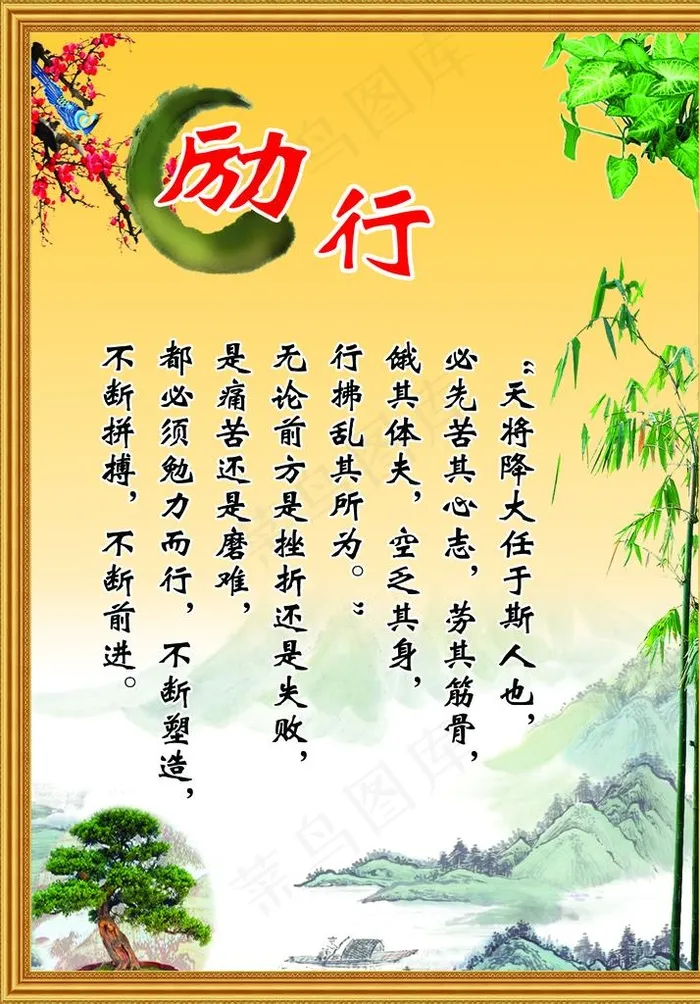 励行
“天将降大任于斯人也，
必先苦其心志，劳其筋骨，
饿其体夫，空乏其身，
行拂乱其所为。”
无论前方是挫折还是失败，
是痛苦还是磨难，
都必须勉力而行，不断塑造，
不断拼搏，不断前进。
菜鸟图库
菜鸟图库
菜鸟图库